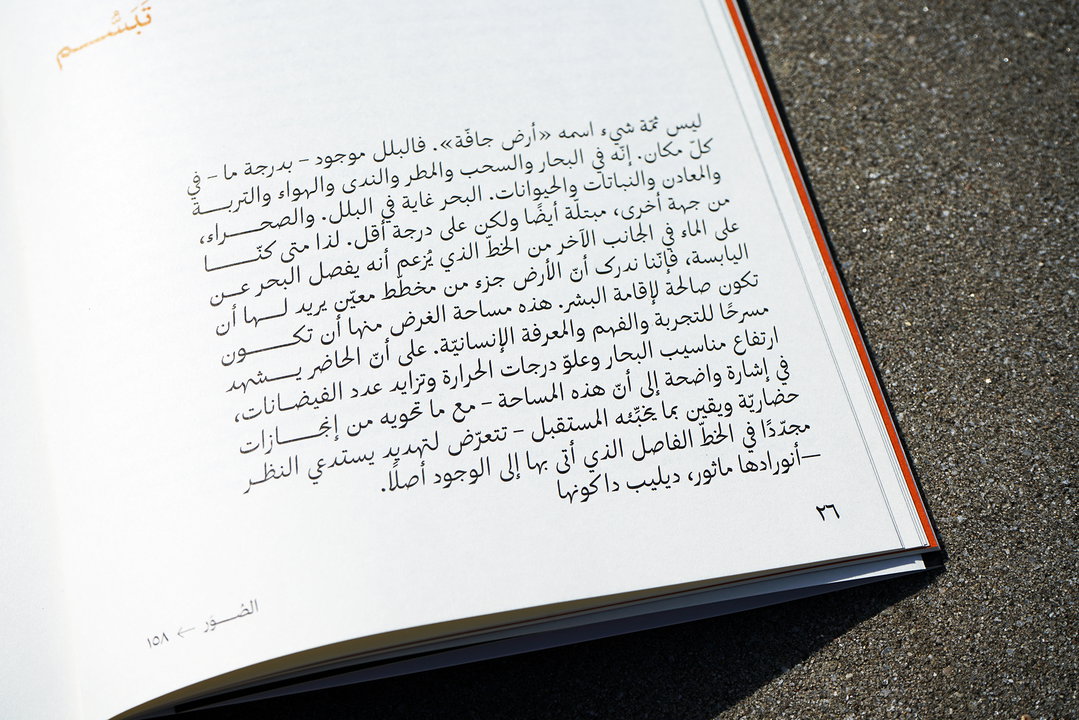 تَبَسُّم
ليس ثمّة شيء اسمه «أرض جافّة». فالبلل موجود – بدرجة ما – في
كلّ مكان. إنّه في البحار والسحب والمطر والندى والهواء والتربة
والمعادن والنباتات والحيوانات. البحر غاية في البلل. والصحراء،
من جهة أخرى، مبتلّة أيضًا ولكن على درجة أقل. لذا متى كنّا
على الماء في الجانب الآخر من الخطّ الذي يُزعم أنه يفصل البحر عن
اليابسة، فإنّنا ندرك أنّ الأرض جزء من مخطّط معيّن يريد لها أن
تكون صالحة لإقامة البشر. هذه مساحة الغرض منها أن تكون
مسرحًا للتجربة والفهم والمعرفة الإنسانيّة. على أنّ الحاضر يشهد
ارتفاع مناسيب البحار وعلوّ درجات الحرارة وتزايد عدد الفيضانات،
في إشارة واضحة إلى أنّ هذه المساحة – مع ما تحويه من إنجازات
حضاريّة ويقين بما يخبّئه المستقبل – تتعرّض لتهديد يستدعي النظر
مجدّدًا في الخطّ الفاصل الذي أتى بها إلى الوجود أصلًا.
—أنورادها ماثور، ديليب داكونها
٢٦
الصُوَر ← ١٥٨